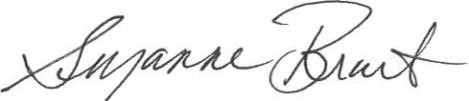 Suzanne Brart